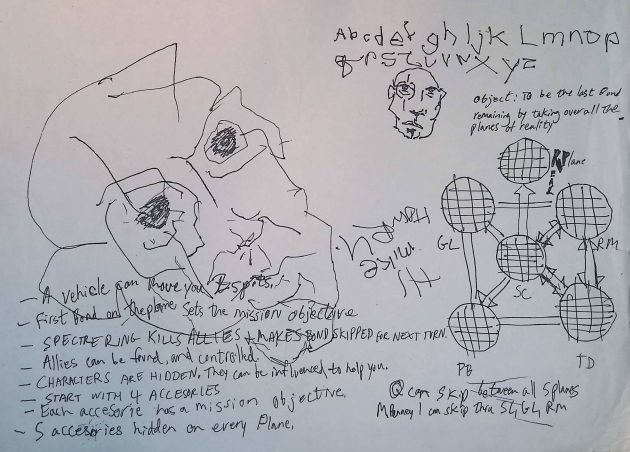 Abcdef ghIjK Lmnop
qrstuvwxyz
object: To be the last Bond
remaining by taking over all the
planes of reality
Plane
GL
RM
SC
PB
TD
Hi
mike
– A vehicle can move you spots.
– First Bond on the plane sets the mission objective
– SPECTRE RING KILLS ALLIES + MAKES BOND SKIPPED FOR NEXT TURN.
– Allies can be found, and controlled.
– CHARACTERS ARE HIDDEN, They can be influenced to help you.
– START WITH 4 ACCESORIES
– Each accesorie has a mission objective.
– 5 accesories hidden on every Plane.
Q can skip between all 5 planes
M Penney 1 can skip thru SC, GL, RM